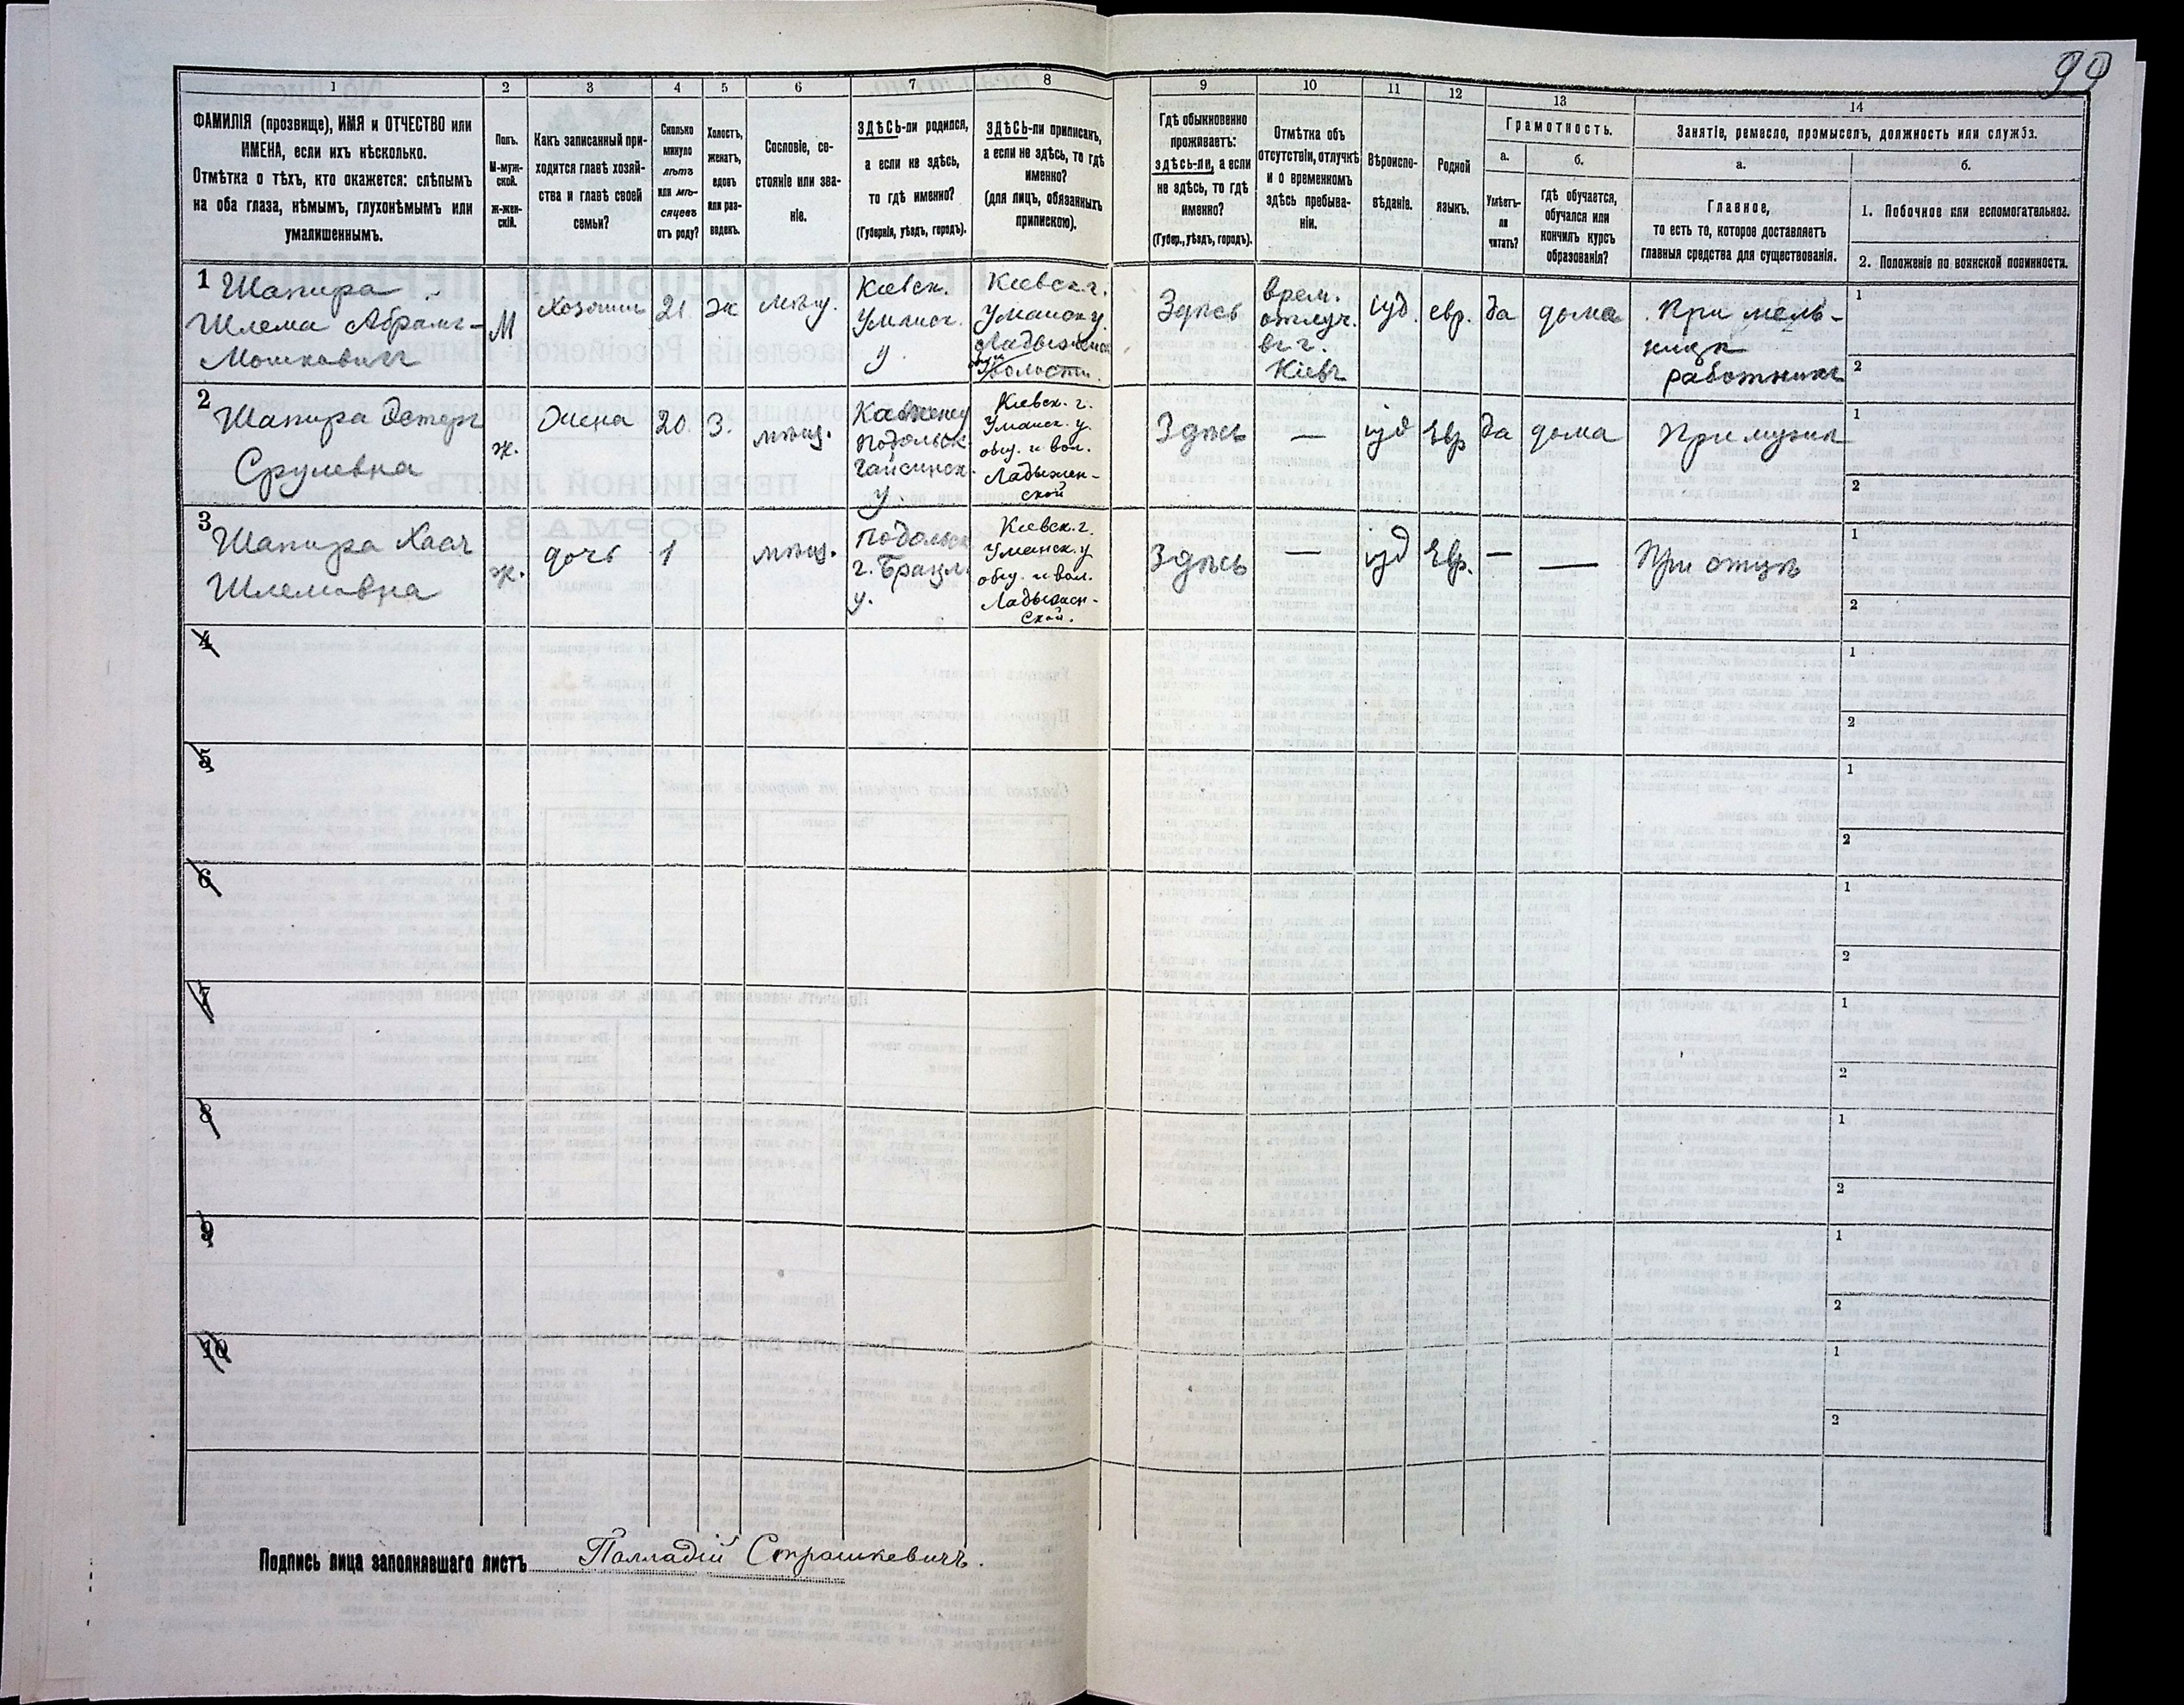 99
1
2
3
4
5
6
7
8
9
10
11
12
13
14
ФАМИЛІЯ (прозвище), ИМЯ и ОТЧЕСТВО или
ИМЕНА, если ихъ нѣсколько.
Отмѣтка о тѣхъ, кто окажется: слѣпымъ
на оба глаза, нѣмымъ, глухонѣмымъ или
умалишеннымъ.
Полъ.
М-муж-
ской.
Ж-жен-
скій.
Какъ записанный при-
ходится главѣ хозяй-
ства и главѣ своей
семьи?
Сколько
минуло
лѣтъ
или мѣ-
сяцевъ
отъ роду?
Холостъ,
женатъ,
вдовъ
или раз-
веденъ.
Сословіе, со-
стояніе или зва-
ніе.
ЗДѢСЬ-ли родился,
а если не здѣсь,
то гдѣ именно?
(Губернія, уѣздъ, городъ).
ЗДѢСЬ-ли приписанъ,
а если не здѣсь, то гдѣ
именно?
(для лицъ, обязанныхъ
припискою).
Гдѣ обыкновенно
проживаетъ:
здѣсь-ли, а если
не здѣсь, то гдѣ
именно?
(Губер., уѣздъ, городъ).
Отмѣтка объ
отсутствіи, отлучкѣ
и о временномъ
здѣсь пребыва-
ніи.
Вѣроиспо-
вѣданіе.
Родной
языкъ.
Грамотность.
а.
Умѣетъ-
ли
читать?
б.
Гдѣ обучается,
обучался или
кончилъ курсъ
образованія?
Занятіе, ремесло, промыселъ, должность или служба.
а.
Главное,
то есть то, которое доставляетъ
главныя средства для существованія.
б.
1. Побочное или вспомогательное.
2. Положеніе по воинской повинности.
1 Шапира
Шлема Абрамъ-
Мошковичъ
М
Хозяинъ
21
ж
мѣщ.
Кіевск.
Уманск.
у.
Кіевск. г.
Уманск. у.
Ладыженск
волости.
Здѣсь
врем.
отлуч.
въ г.
Кіевъ
іуд.
евр.
да
дома
При мель-
ницѣ
работникъ
1
2
2
Шапира Эстеръ
Срулевна
ж.
Жена
20
З.
мѣщ.
Подольск
Гайсинск.
у.
Кіевск. г.
Уманск. у.
общ. и вол.
Ладыжен-
ской
Здѣсь
—
іуд
Евр
да
дома
При мужѣ
1
2
3
Шапира Хаая
Шлемовна
ж.
дочь
1
мѣщ.
Подольск
г. Брацл.
у.
Кіевск. г.
Уманск. у
общ. и вол.
Ладыжен-
ской.
Здѣсь
—
іуд
Евр.
—
—
При отцѣ
1
2
4
1
2
5
1
2
6
1
2
7
1
2
8
1
2
9
1
2
10
1
2
Подпись лица заполнявшаго листъ Палладій Страшкевичъ.